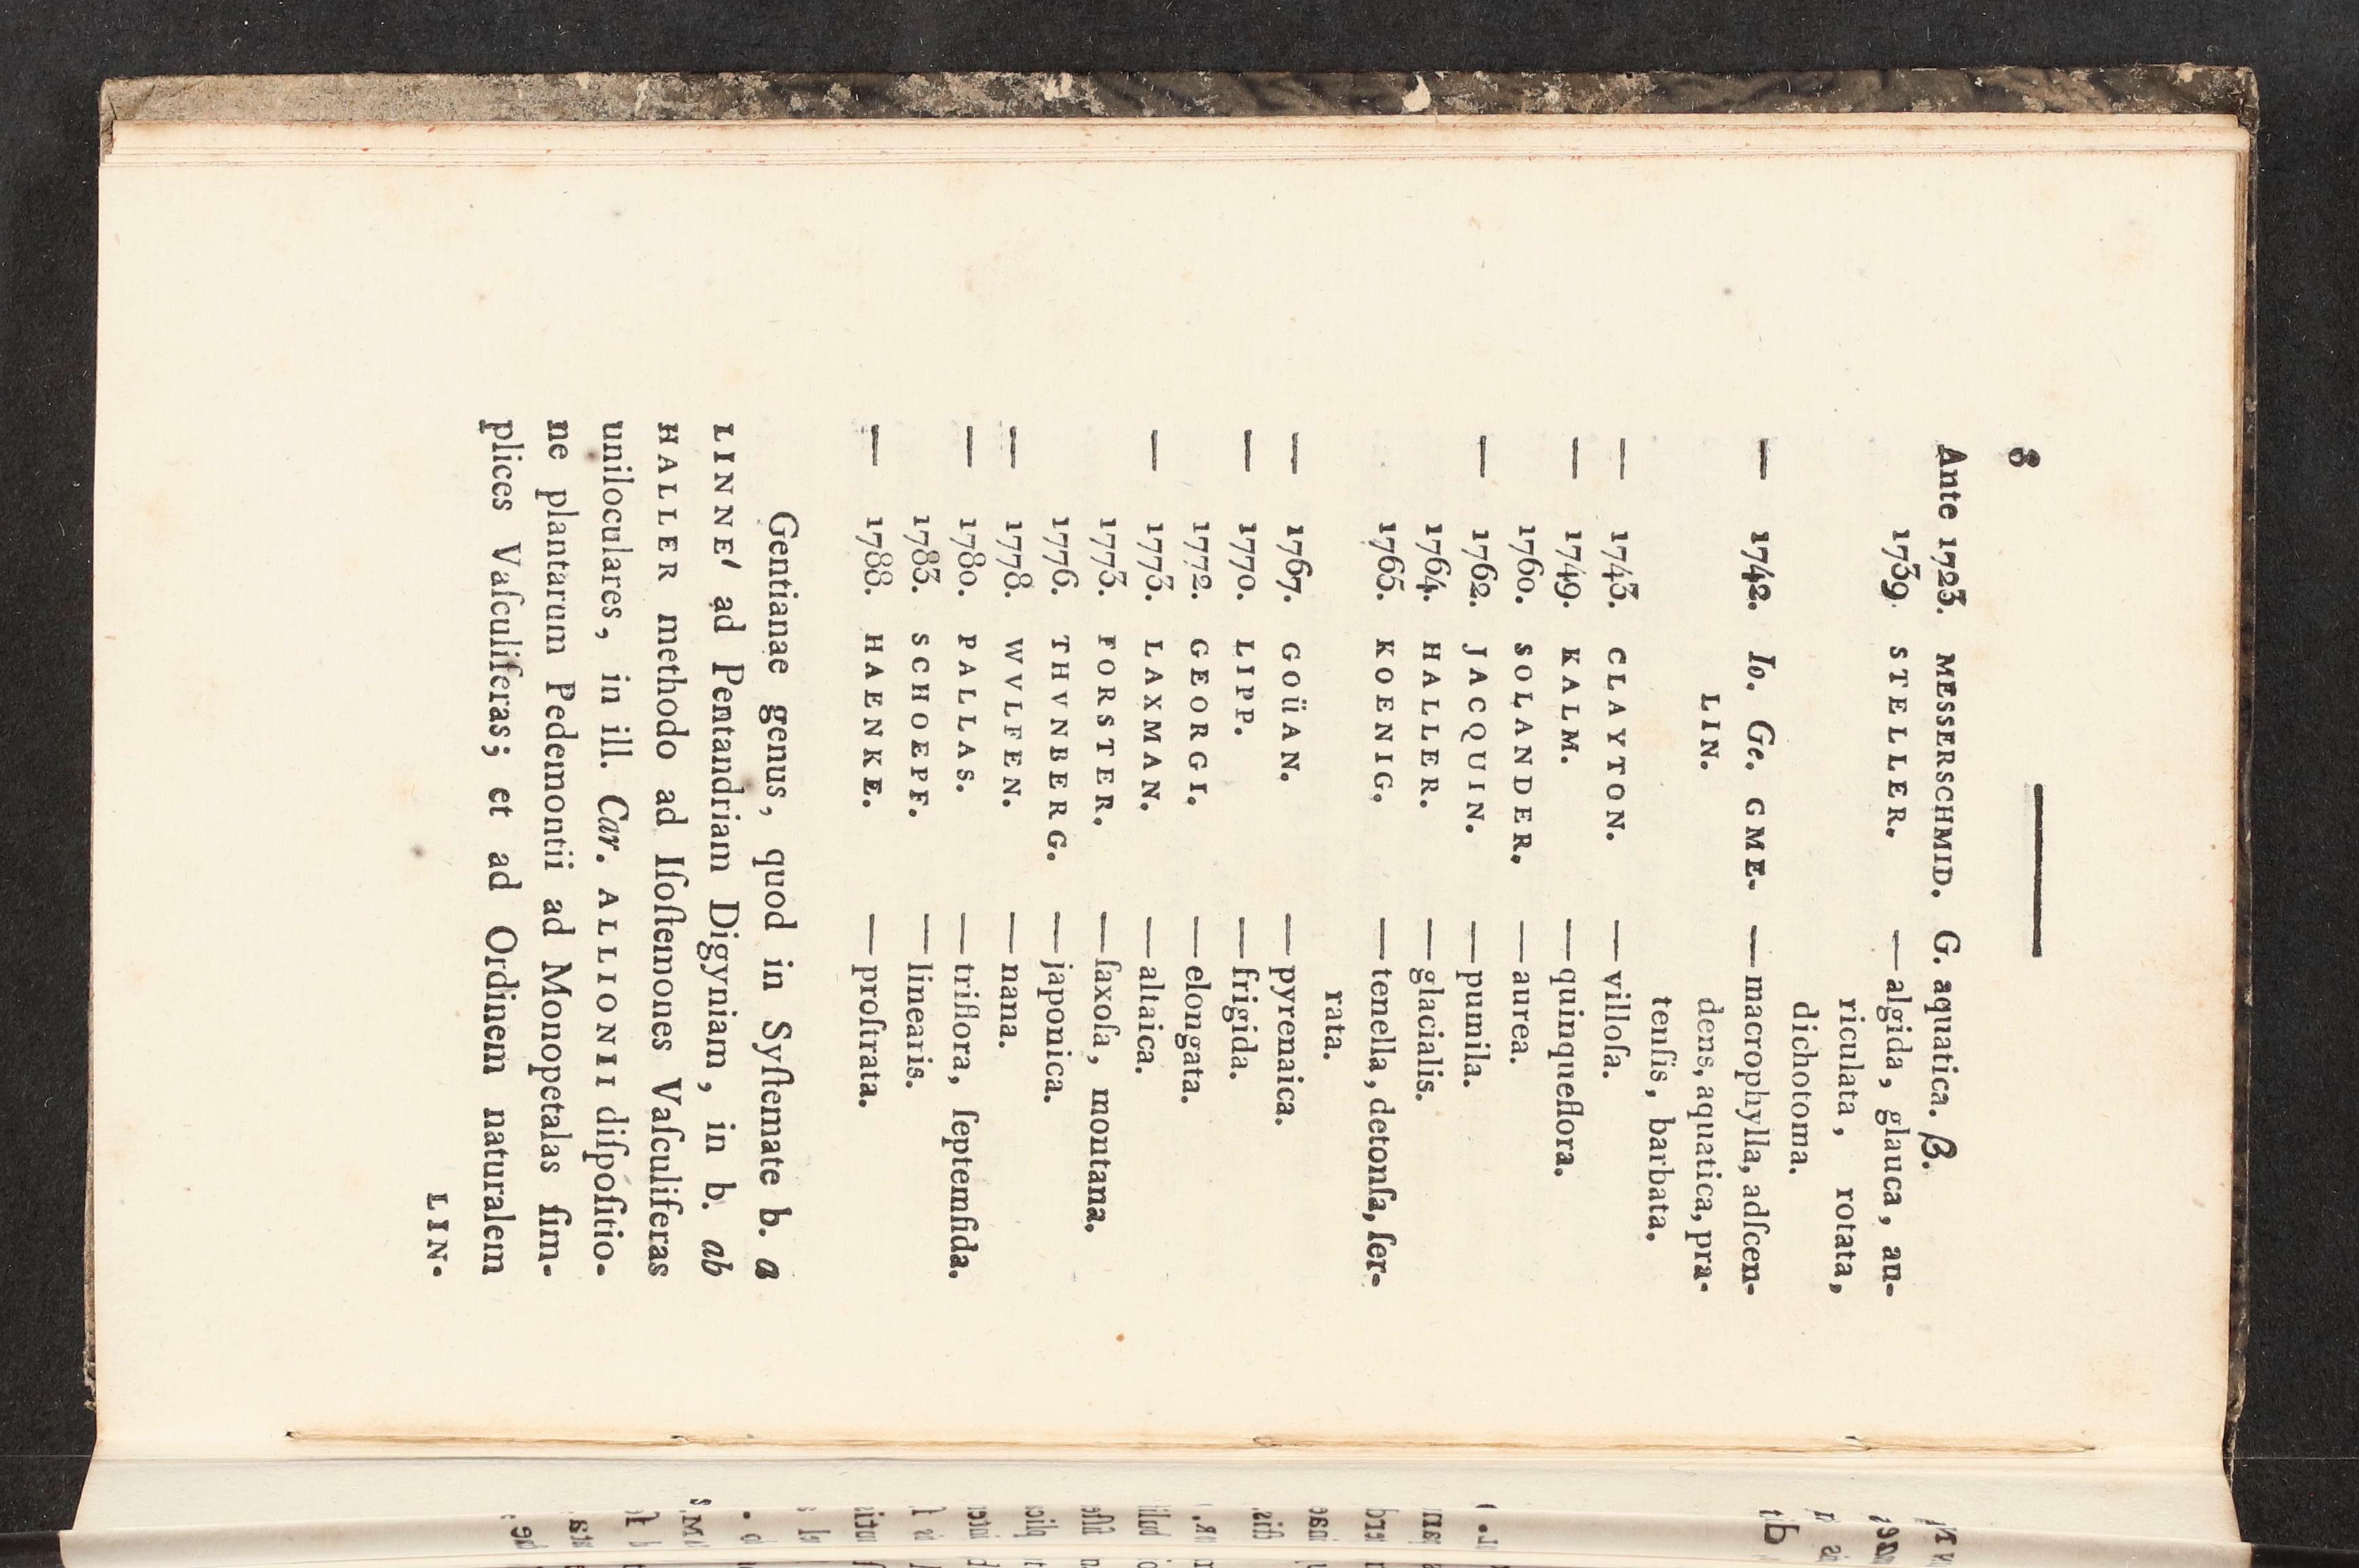 8
Ante 1723. MESSERSCHMID. G. aquatica. β.
1739. STELLER. — algida, glauca, au-
riculata, rotata,
dichotoma.
— 1742. Io. Ge. GME- — macrophylla, adſcen-
LIN. dens, aquatica, pra-
tenſis, barbata.
— 1743. CLAYTON. — villoſa.
— 1749. KALM. — quinqueflora.
1760. SOLANDER. — aurea.
— 1762. JACQUIN. — pumila.
1764. HALLER. — glacialis.
1765. KOENIG. — tenella, detonſa, ſer-
rata.
— 1767. GOüAN. — pyrenaica.
— 1770. LIPP. — frigida.
1772. GEORGI. — elongata.
— 1773. LAXMAN. — altaica.
1773. FORSTER. — ſaxoſa, montana.
1776. THVNBERG. — japonica.
— 1778. WVLFEN. — nana.
— 1780. PALLAS. — triflora, ſeptemfida.
1783. SCHOEPF. — linearis.
— 1788. HAENKE. — proſtrata.
Gentianae genus, quod in Syſtemate b. a
LINNE' ad Pentandriam Digyniam, in b. ab
HALLER methodo ad Iſoſtemones Vaſculiferas
uniloculares, in ill. Car. ALLIONII diſpoſitio-
ne plantarum Pedemontii ad Monopetalas ſim-
plices Vaſculiferas; et ad Ordinem naturalem
LIN-